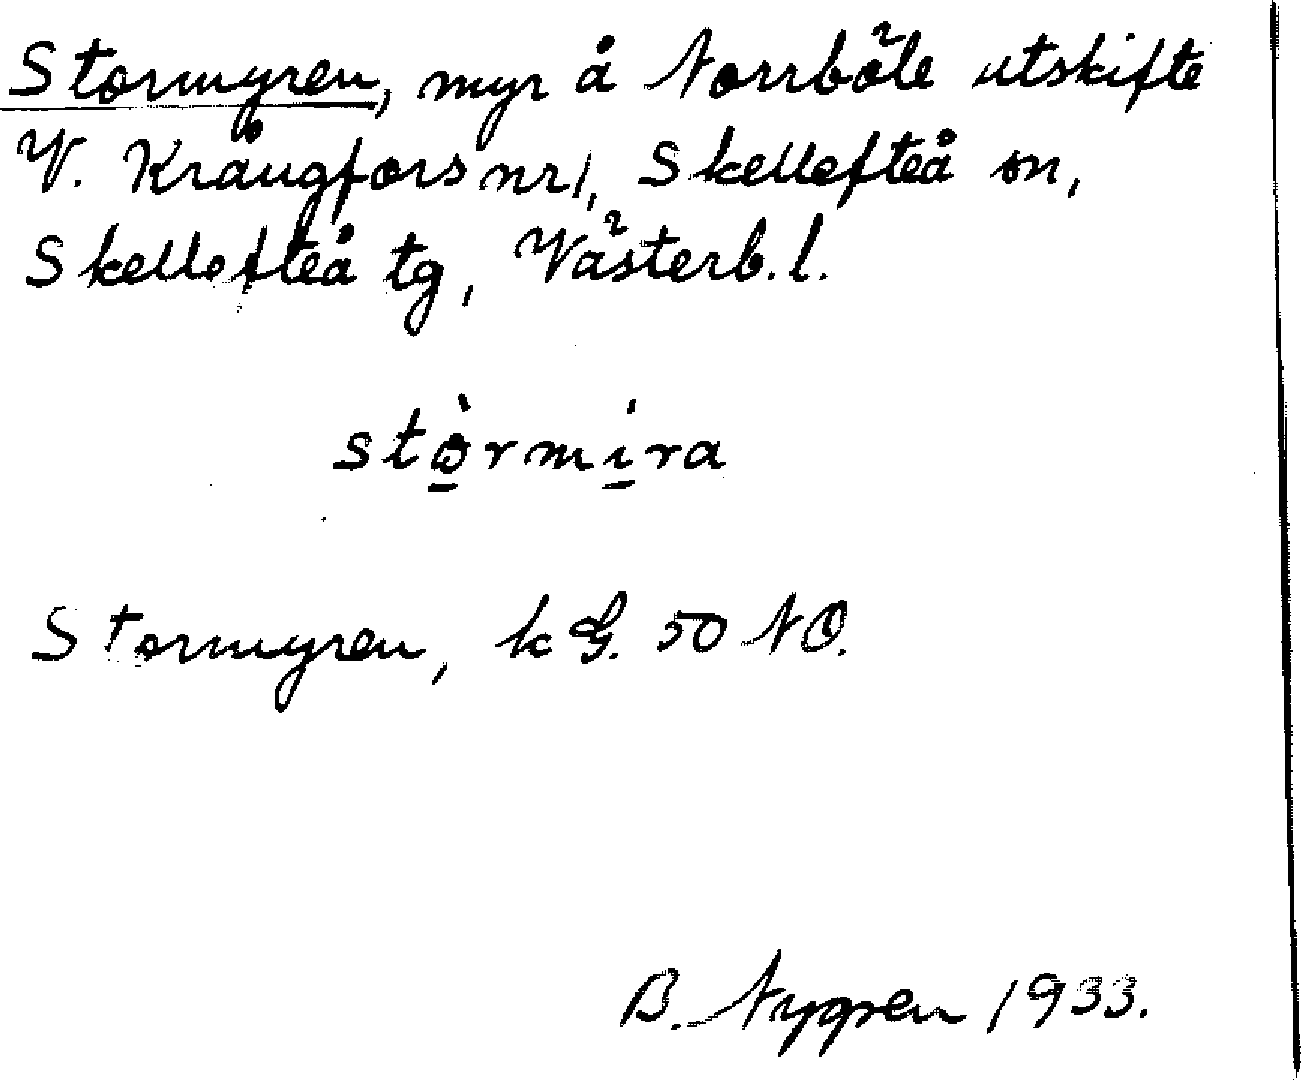 Stormyren, myr å Norrböle utskifte
V. Krångfors nr 1, Skellefteå sn,
Skellefteå tg, Västerb. l.
stòrmíra
Stormyren, k G. 50 NO.
B. Nygren 1933.